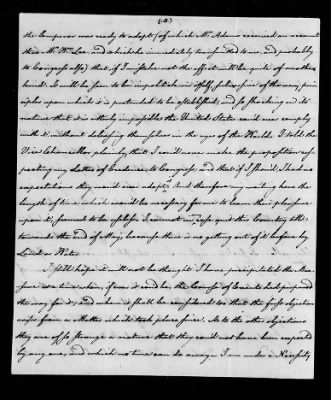 (2)
the Emperour was ready to adopt (of which Mr. Adams received an account
thro' Mr. W. Lee, and which he immediately transmitted to me, and probably
to Congress also) that, if I mistake not the effect will be quite of another
kind. It will be seen to be impolitick, as false, since if the very prin-
ciples upon which it is pretended to be established, and so shocking in its
nature that it is utterly impossible the United States cou'd ever comply
with it without debasing themselves in the eyes of the World. I told the
Vice Chancellor plainly, that I cou'd never make the proposition re-
specting my Letter of Credence, to Congress, and that if I should, I had no
expectations they wou'd ever adopt it. And therefore my waiting here the
length of time which would be necessary for me to learn their pleasure
upon it, seemed to be useless. I can not in case quit this Country till
towards the end of May, because there is no getting out of it before by
Land or Water.
I still hope it will not be thought I have precipitated the Mea-
sure at a time when, if ever it could be, the Course of Events had prepared
the way for it, and when it shall be considered too that the first objection
arises from a Matter which took place since. As to the other objections
they are of so strange a nature that they cou'd not have been expected
by any one, and which no time can do away. I am under a Necessity